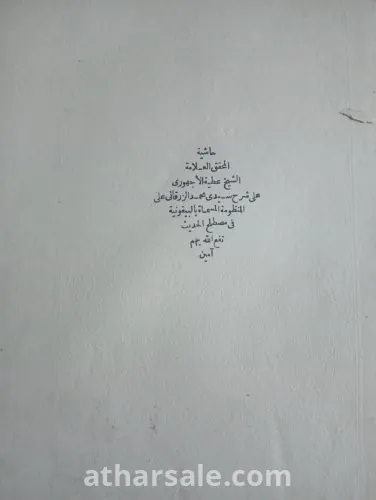 حاشية
المحقق العلامة
الشيخ عطية الأجهورى
على شرح سيدى محمد الزرقانى على
المنظومة المسماة بالبيقونية
فى مصطلح الحديث
نفع الله بهم
آمين
atharsale.com